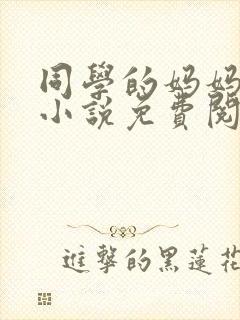 同學的媽媽
小說免費閱
進擊的黑蓮花